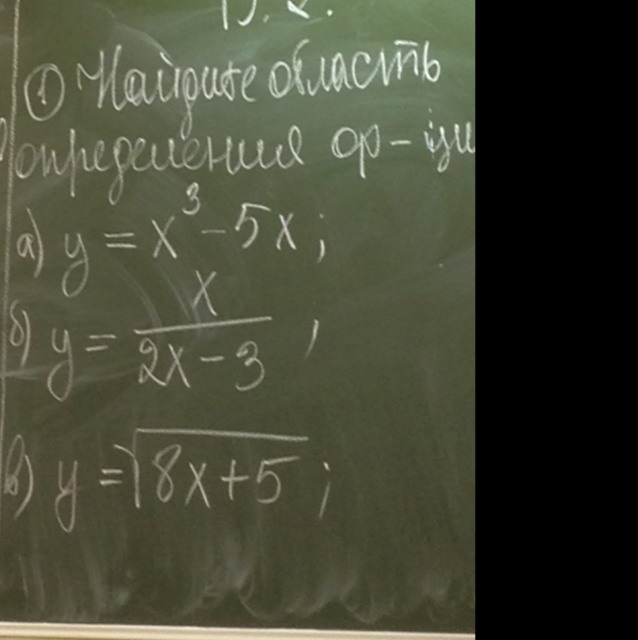 ① Найдите область
определения ф-ци
а) y = x³ - 5x;
б) y = x/(2x - 3),
в) y = √(8x+5);